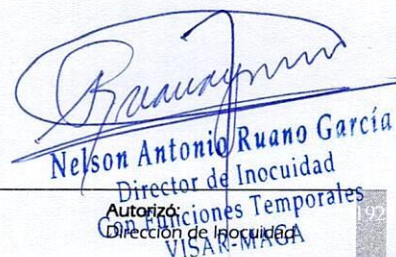 Nelson Antonio Ruano García
Director de Inocuidad
Con Funciones Temporales
VISAR-MAGA
Autorizó:
Dirección de Inocuidad
192